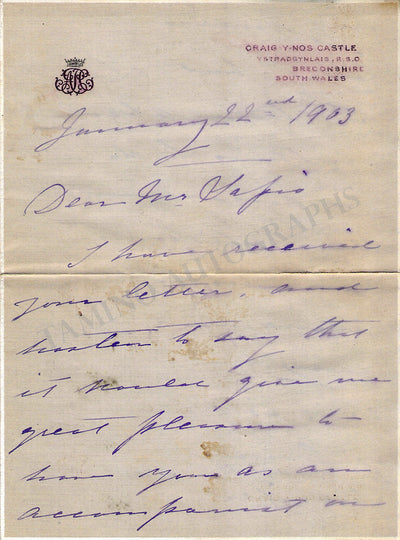 CRAIG-Y-NOS CASTLE
YSTRADGYNLAIS, R.S.O.
BRECONSHIRE
SOUTH WALES
January 22nd 1903
Dear Mr Sapio
I have received
your letter, and
hasten to say that
it would give me
great pleasure to
have you as an
accompanist in
TAMINO AUTOGRAPHS